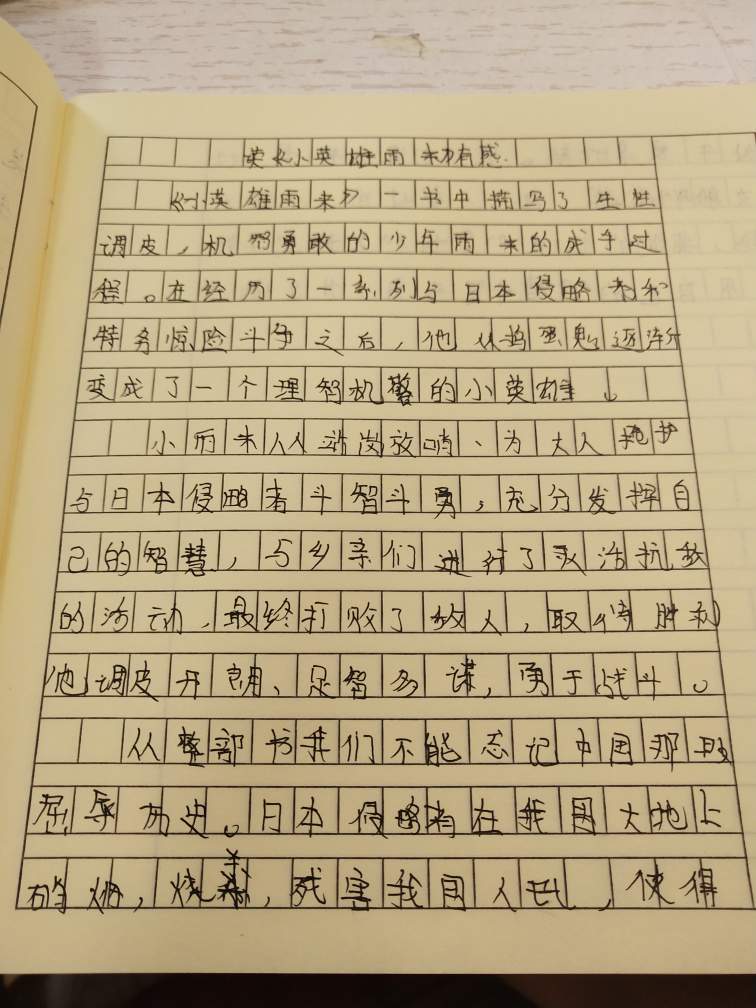 小英雄雨来有感
《小英雄雨来》一书中描写了生性
调皮,机智勇敢的少年雨来的成手过
程。在经历了一系列与日本侵略者和
特务惊险斗争之后,他从捣蛋鬼逐渐
变成了一个理智机警的小英雄。
小雨来从站岗放哨、为大人掩护
与日本侵略者斗智斗勇,充分发挥自
己的智慧,与乡亲们进行了灵活抗敌
的活动,最终打败了敌人,取得胜利
他调皮开朗、足智多谋,勇于战斗。
从整部书我们不能忘记中国那段
屈辱历史。日本侵略者在我国大地上
烧杀,残害我国人民,使得